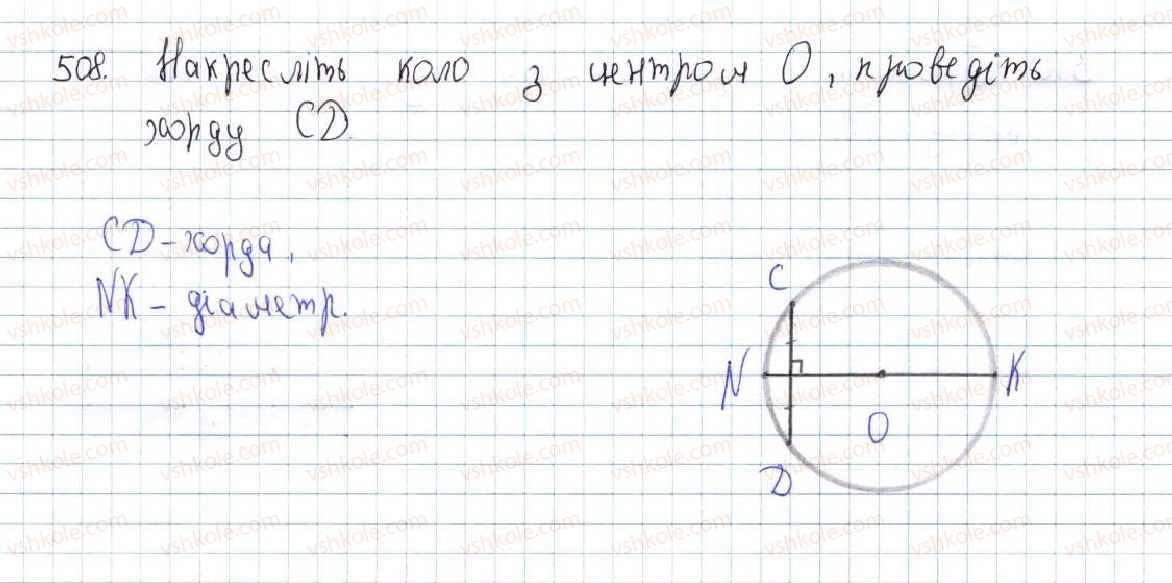 508. Накресліть коло з центром О, проведіть
хорду CD.
CD - хорда,
NK - діаметр.
C
N
K
O
D